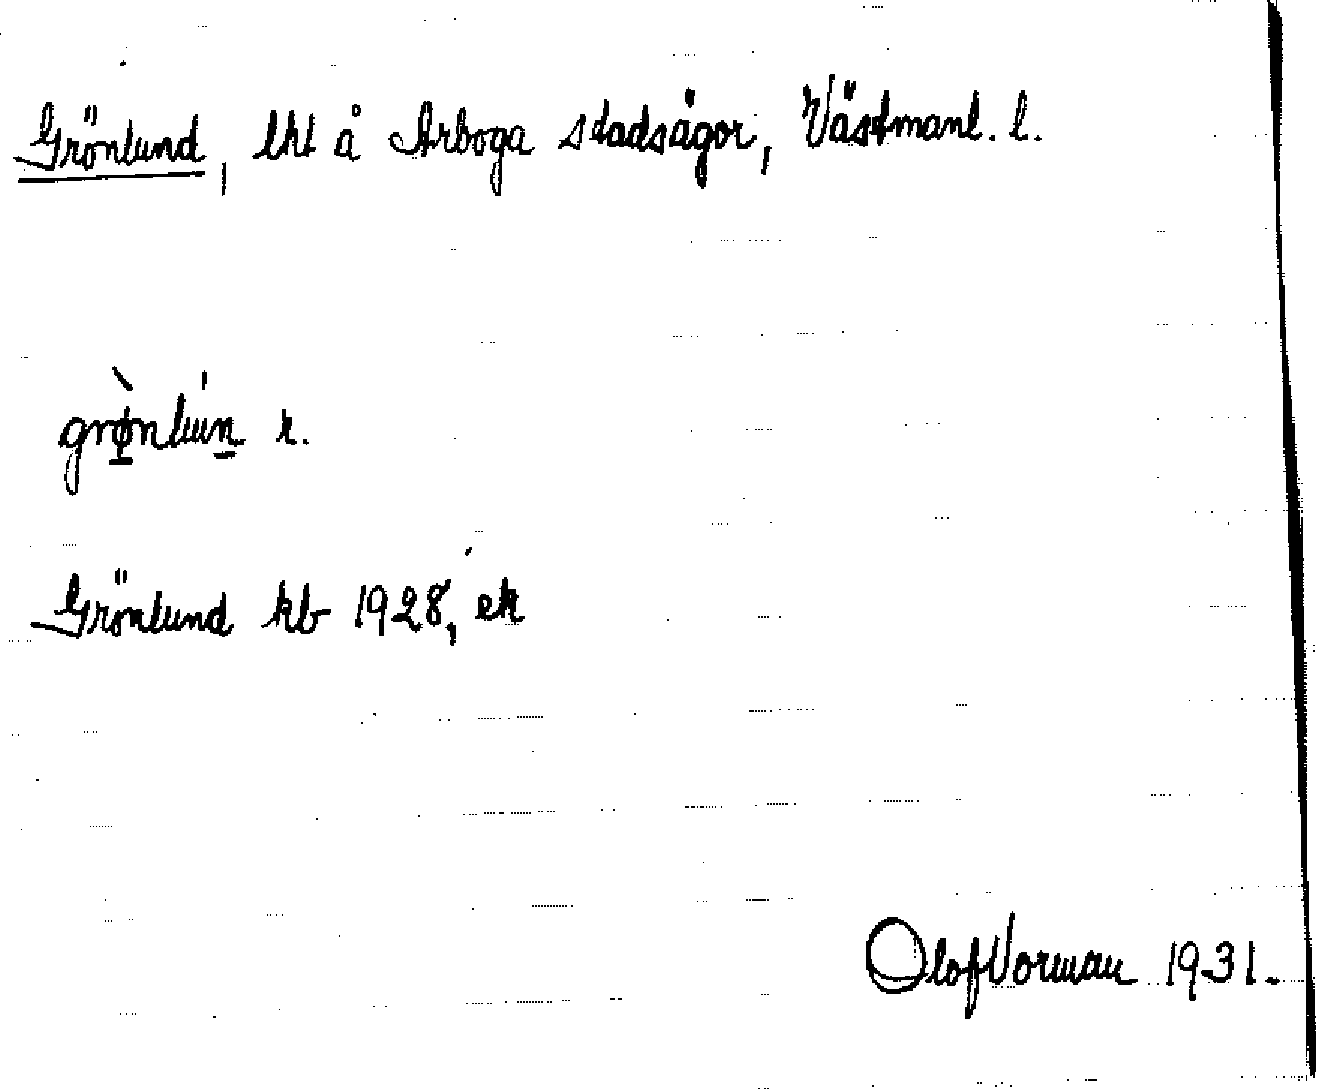 Grönlund, lht å Arboga stadsägor, Västmanl. l.
grø̀nlun r.
Grönlund kb 1928, ek
Olof Vorman 1931.